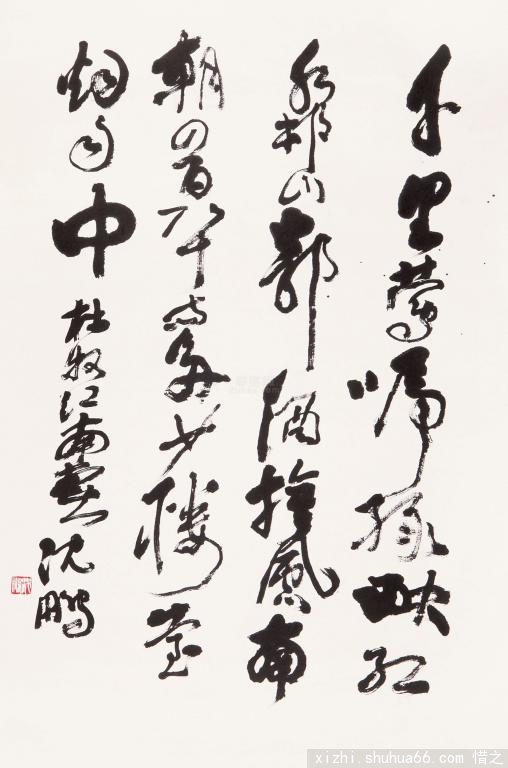 千里莺啼绿映红
水村山郭酒旗風南
朝四百八十寺多少楼台
烟雨中 杜牧江南春 沈鹏
xizhi.shuhua66.com 惜之